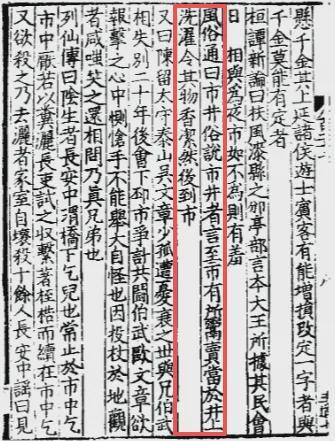 懸千金其上延諸侯遊士賓客有能增損改定一字者與
千金莫能有定者
桓譚新論曰扶風漆縣之邠亭部言本大王所據其民會
日 相與為夜市如不為則有眚
風俗通曰市井俗說市井者言至市有所鬻賣當於井上
洗濯令其物香潔然後到市
又曰陳留太守泰山吳文章少孤遭憂衰之世與兄伯武
相失別二十年後會下邳市爭計共鬭伯武歐文章欲
報擊之心中惻愴手不能舉大自怪也因投杖於地觀
者咸嗤笑之還相問乃眞兄弟也
列仙傳曰陰生者長安中渭橋下乞兒也常止於市中乞
市中厭苦以糞灑長吏試之收繫著桎梏而續在市中乞
又欲殺之乃去灑者家室自壞殺十餘人長安中謠曰見